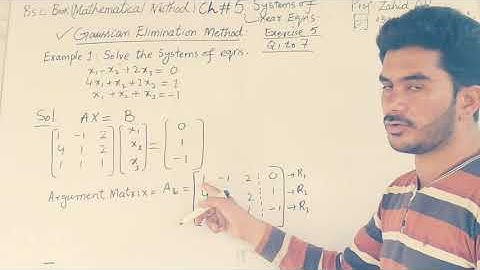 Bsc. Book (Mathematical Method) Ch#5 Systems of
Prof Zahid
✓ Gaussian Elimination Method
Exercise 5
Q1 to 7
Example 1: Solve the Systems of eqns.
x₁-x₂+2x₃=0
4x₁+x₂+2x₃=1
x₁+x₂+x₃=-1
Sol. AX= B
1 -1 2 x₁ 0
4 1 2 x₂ = 1
1 1 1 x₃ -1
Argument Matrix = A_b =
1 -1 2 0 →R₁
2 1 →R₂
-1 →R₃